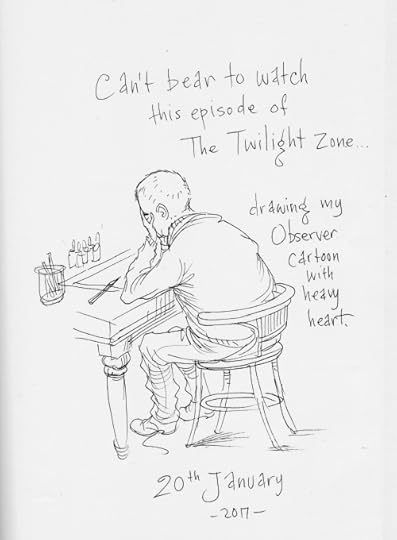 Can't bear to watch
this episode of
The Twilight Zone...
drawing my
Observer
cartoon
with
heavy
heart.
20th January
- 2017 -